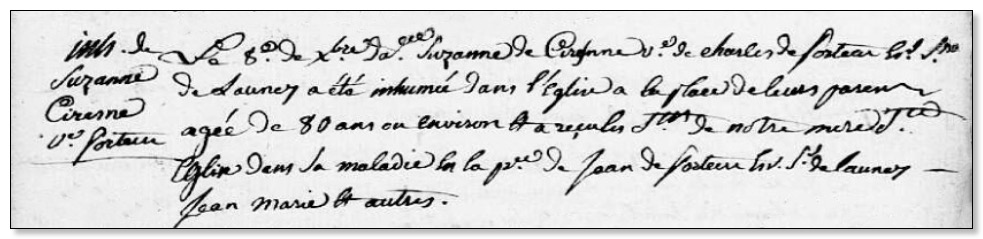 inh. de
Suzanne
Ciresne
v.e Sorteur
La 8.e de Xbre da.lle Suzanne de Ciresne v.e de charles de Sorteur Es.r S.r
de Launey a été inhumée dans l'Eglise a la place de leurs parens
agée de 80 ans ou environ Et a reçu les S.ts de notre mere S.te
Eglise dans sa maladie En la p.ce de Jean de Sorteur Es.r S.r de launey
Jean marie Et autres.